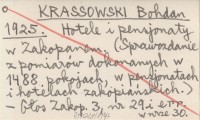 KRASSOWSKI Bohdan
1925. Hotele i pensjonaty
w Zakopanem. (Sprawozdanie
z pomiarów dokonanych w
1488 pokojach, w pensjonatach
i hotelach zakopiańskich.)
– Głos Zakop. 3, nr 29 i err.
w nrze 30.